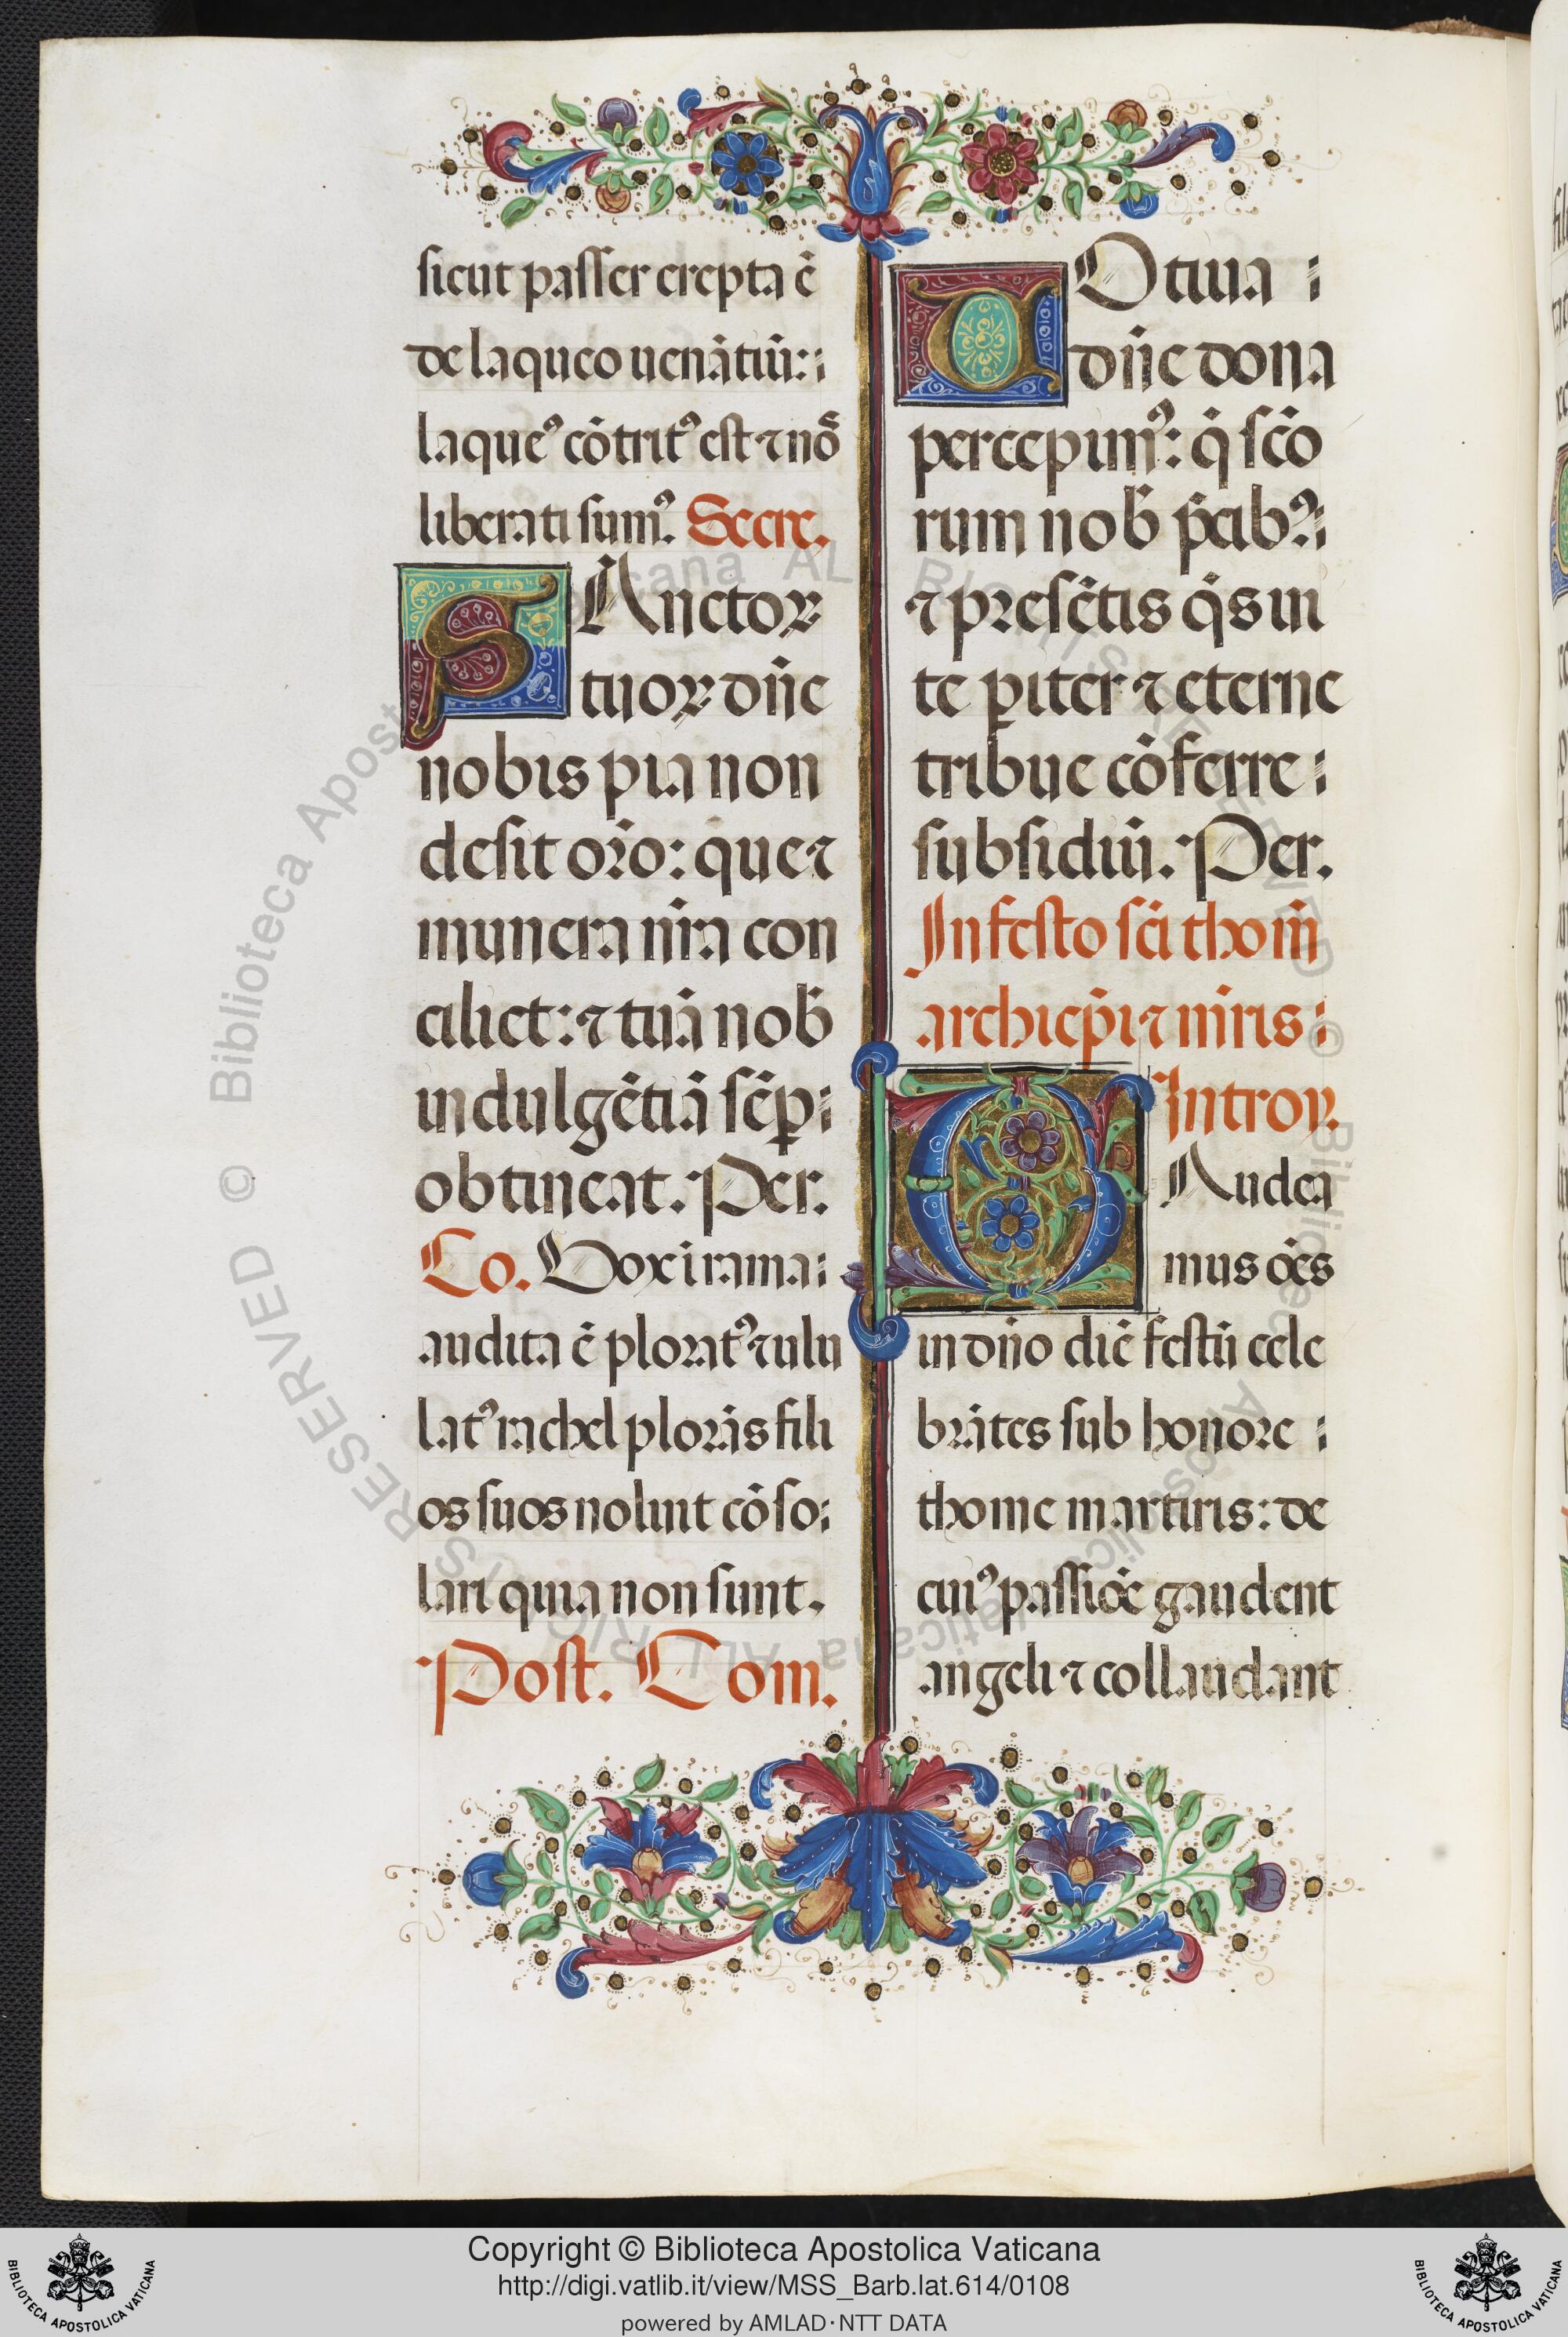 sicut passer erepta ẽ
de laqueo uenãtiũ:
laqueꝰ cõtritꝰ est ⁊ nos̃
liberati sumꝰ. Secre.
SAnctoꝝ
tuoꝝ dñe
nobis pia non
desit or̃o: que ⁊
munera nr̃a con
ciliet: ⁊ tuã nob̃
indulgẽtiã sẽp̱
obtineat. Per.
Co. Vox i rama
audita ẽ ploratꝰ ⁊ ulu
latꝰ rachel plorãs fili
os suos noluit cõso
lari quia non sunt.
Post. Com.
UOtiua
dñe dona
percepimꝰ: q̃ sc̃o
rum nob̃ p̃cibꝰ
⁊ presẽtis q̃s ui
te p̱iter ⁊ eterne
tribue cõferre
subsidiũ. Per.
In festo sc̃i thom̃
archiep̃i ⁊ mr̃is
Introy.
GAudea
mus oẽs
in dño diẽ festũ cele
brãtes sub honore
thome martiris: de
cuiꝰ passiõe gaudent
angeli ⁊ collaudant
© Biblioteca Apostolica Vaticana ALL RIGHTS RESERVED
Copyright © Biblioteca Apostolica Vaticana
http://digi.vatlib.it/view/MSS_Barb.lat.614/0108
powered by AMLAD·NTT DATA
BIBLIOTECA APOSTOLICA VATICANA
BIBLIOTECA APOSTOLICA VATICANA